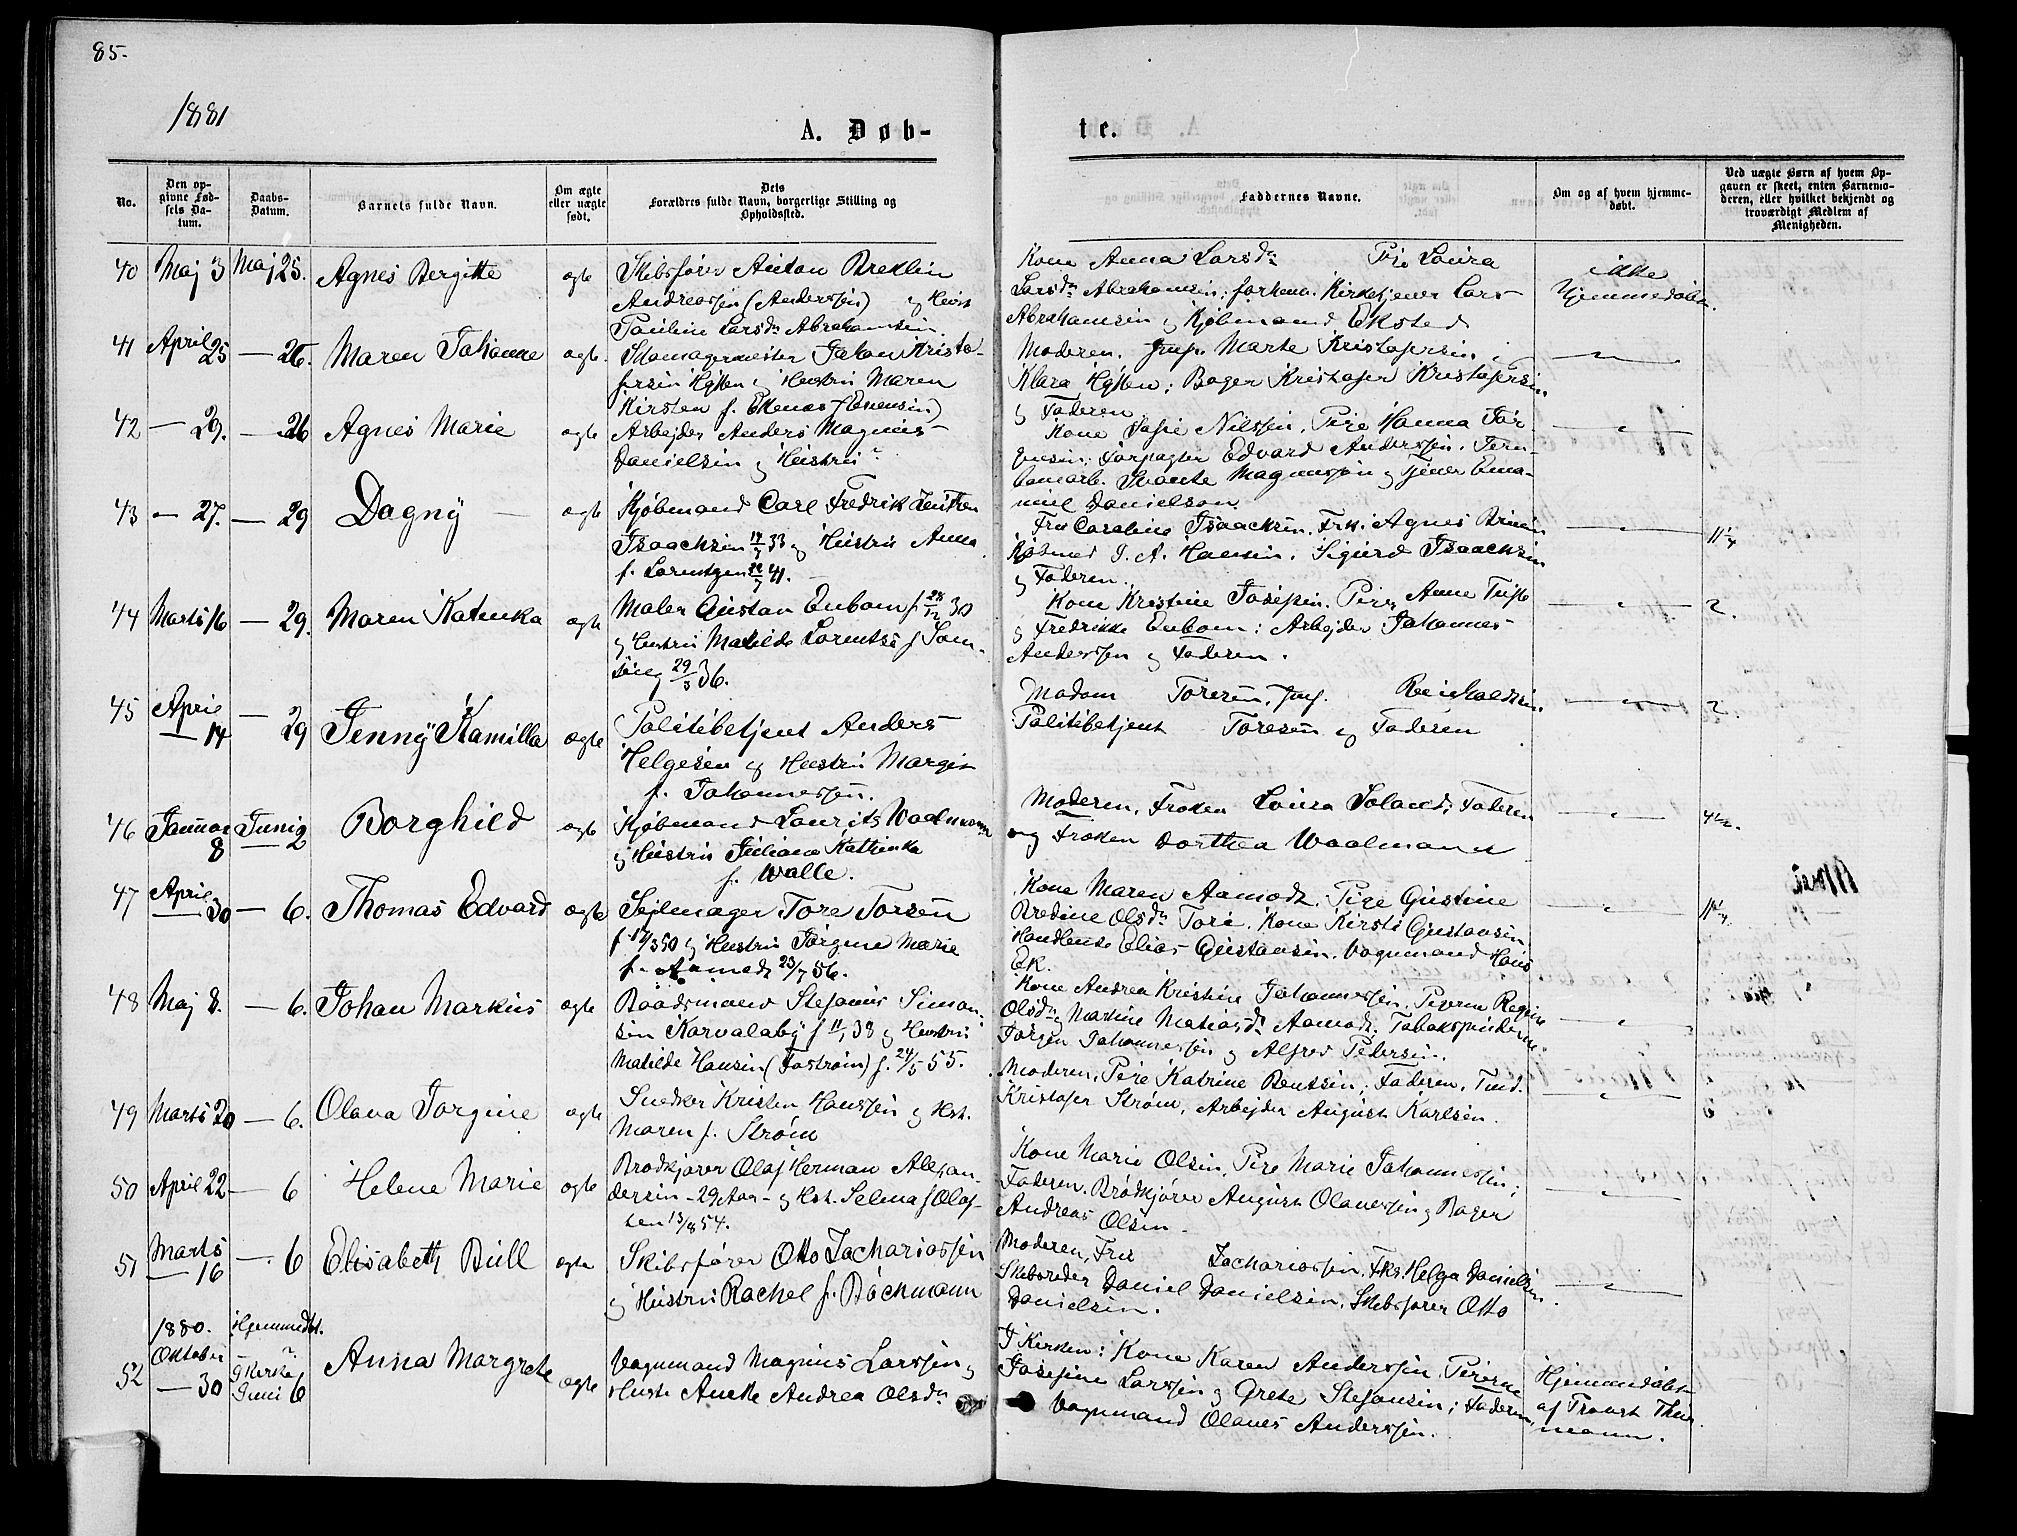 85.
1881
A. Døb-
te.
No.
Den op-
givne Fød-
sels Da-
tum.
Daabs-
Datum.
Barnets fulde Navn.
Om ægte
eller uægte
født.
Dets
Forældres fulde Navn, borgerlige Stilling og
Opholdssted.
Faddernes Navne.
Om og af hvem hjemme-
døbt.
Ved uægte Børn af hvem Op-
gaven er skeet, enten Barnemo-
deren, eller hvilket bekjendt og
troværdigt Medlem af
Menigheden.
40 Maj 3 Maj 25. Agnes Bergitte ægte Skibsfører Anton Breklin
Andreassen (Anderssen) og Hustr
Pauline Larsdr Abrahamsen.
Kone Anna Larsdr Pige Lovra
Larsdr Abrahamsen; forhenv. Kirketjener Lars
Abrahamsen og Kjøbmand Eksted
ikke
hjemmedøbt.
41 April 25 — 26. Maren Johanne ægte. Skomagermester Johan Kristo-
fersen Hysten og Hustru Maren
Kirsten f. Ekenæs (Evensen)
Moderen. Jmfr. Marte Kristofersen
Klara Hysten; Bager Kristofer Kristofersen
og Faderen
42 — 29. — 26 Agnes Marie ægte Arbejder Anders Magnus
Danielsen og Hustru
Kone Sofie Nilssen, Pige Hanna Jør-
gensen; Forpagter Edvard Anderssen. Jern-
banearb. Svante Magnussen og Tjener Ema-
nuel Danielson
43 — 27. — 29 Dagny ægte Kjøbmand Carl Fredrik
Isaachsen 33 og Hustru Anna
f. Lorentzen 41.
Fru Caroline Isaachsen. Frk. Agnes
Kjøbmd J. A. Hansen. Sigurd Isaachsen
og Faderen.
44 Marts 16 — 29. Maren Katinka ægte Maler Gustav Enbom f 28/12 30
og Hustru Matilde Lorentse f. Sam-
29/3 36.
Kone Kristine Josefsen. Piger Anne
og Fredrikke Enbom; Arbejder Johannes
Anderssen og Faderen.
2.
45 April
— 14 — 29 Jenny Kamilla ægte Politibetjent Anders
Helgesen og Hustru Margit
f. Johannessen.
Madam Toresen, Jmf. Reinholdsen.
Politibetjent Toresen og Faderen
2.
46 Januar
8 Juni
2 Borghild ægte Kjøbmand Laurits Waalmann
og Hustru Juliane Kathinka
f. Walle.
Moderen, Frøken Lovra Soland; Faderen
og Frøken Dorthea Waalmann
47 April
— 30 — 6. Thomas Edvard ægte Sejlmager Tore Torsen
f 17/3 50 og Hustru Jørgine Marie
f. Aamodt 23/7 56.
Kone Maren Aamodt, Pige Gustine
Bredine Olsdr Tore. Kone Kirsti Gustavsen
Handlende Elias Gustavsen. Vognmand Hans
Ek.
48 Maj 8. — 6. Johan Markus ægte Baadsmand Stefanus Simon-
sen Korvalaby f 11/1 38 og Hustru
Matilde Hansen (Fostrøm) f. 24/5 55.
Kone Andrea Kristine Johannessen. Pigerne Regine
Olsdr og Martine Matiasdr Aamodt. Tobakspinderne
Jørgen Johannessen og Alfred Pedersen.
49 Marts 20 — 6. Olava Jørgine ægte Snedker Kristen Hanssen og Hst.
Maren f. Strøm
Moderen, Pige Katrine Bentsen; Faderen,
Kristofer Strøm, Arbejder August Karlsen.
50 April 22 — 6 Helene Marie ægte Brødkjører Olaf Herman Alexan-
dersen — 29 Aar — og Hst. Selma f Olof-
sen 13/8 54.
Kone Marie Olsen, Pige Marie Johannessen;
Faderen. Brødkjører August Olaussen og Bager
Andreas Olsen.
51 Marts
— 16 — 6 Elisabeth Bull ægte Skibsfører Otto Zachariassen
og Hustru Rachel f. Bøckmann
Moderen, Fru Zachariassen. Frk. Helga Danielsen.
Skibsreder Daniel Danielsen. Skibsfører Otto
Danielsen.
52 1880.
Oktober
— 30 Hjemmedbt.
I Kirken
Juni 6 Anna Margrete ægte Vognmand Magnus Larssen og
Hustr Anette Andrea Olsdr
I Kirken: Kone Karen Anderssen, Pigerne
Josefine Larssen og Grete Stefansen; Faderen,
Vognmand Olaves Anderssen.
Hjemmedøbt
af Provst Thur-
mann.